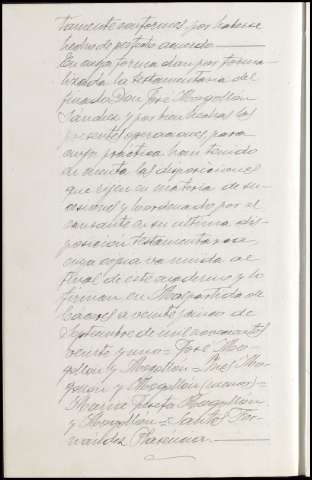 tamente conformes, por haberse
hecho de perfecto acuerdo.
En cuya forma dan por forma-
lizada la testamentaria del
finado Don José Mogollón
Sánchez y por bien hechas las
presentes operaciones, para
cuya práctica han tenido
en cuenta las disposiciones
que rigen en materia de su-
cesiones y lo ordenado por el
causante en su última dis-
posición testamentaria de
cuya copia va unida al
final de este cuaderno y lo
firman en Malpartida de
Cáceres a veinte cinco de
Septiembre de mil novecientos
veinte y uno = José Mo-
gollón y Mogollón = Inés Mo-
gollón y Mogollón =
Mogollón
y Mogollón = Santos Fer-
nández Plasencia.